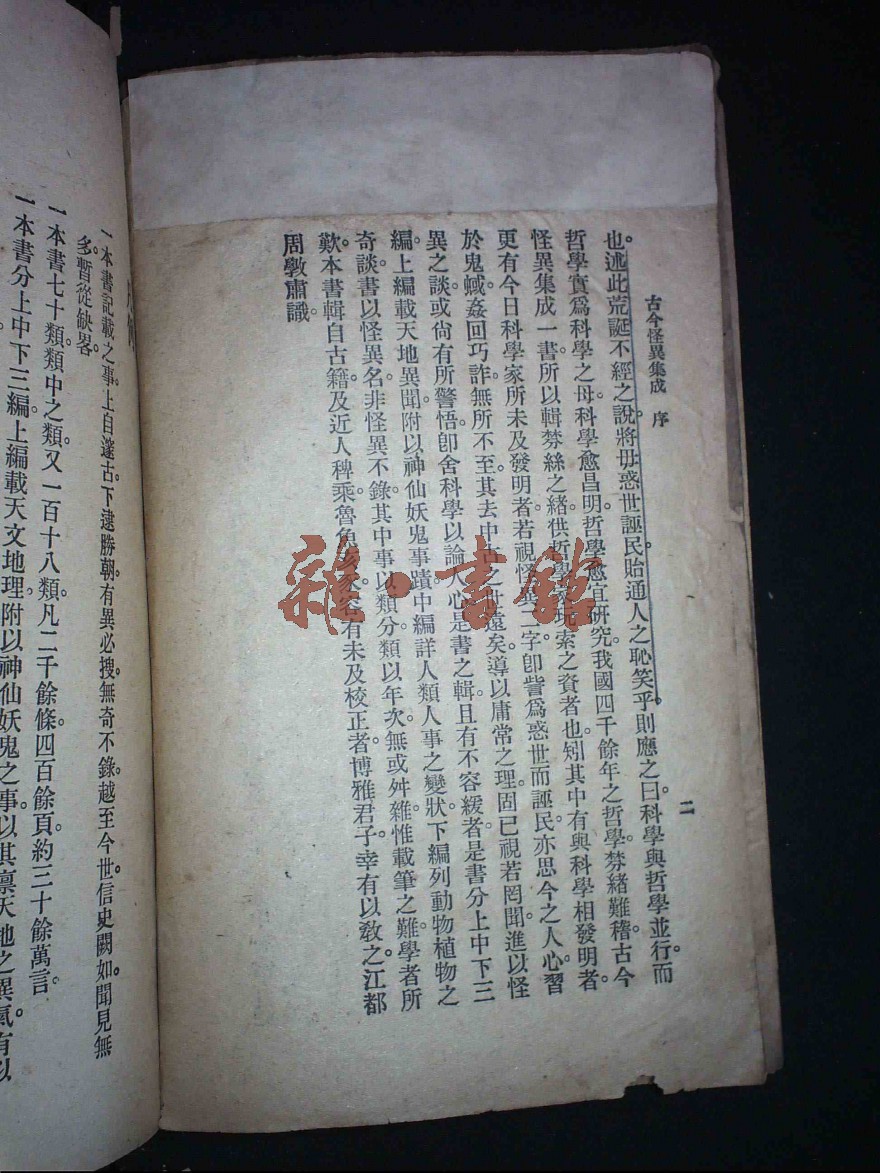 古今怪異集成 序
二
也。述此荒誕不經之說。將毋惑世誣民貽通人之恥笑乎。則應之曰。科學與哲學並行。而
哲學實爲科學之母。科學愈昌明。哲學愈宜研究。我國四千餘年之哲學。棼緒難稽。古今
怪異集成一書。所以輯棼絲之緒。供哲學家玩索之資者也。矧其中有與科學相發明者。
更有今日科學家所未及發明者。若視怪異二字。卽訾爲惑世而誣民。亦思今之人心。習
於鬼蜮。姦回巧詐。無所不至。其去中古之世遠矣。導以庸常之理。固已視若罔聞。進以怪
異之談。或尙有所警悟。卽舍科學以論人心。是書之輯。且有不容緩者。是書分上中下三
編。上編載天地異聞。附以神仙妖鬼事蹟。中編詳人類人事之變狀。下編列動物植物之
奇談。書以怪異名。非怪異不錄。其中事以類分。類以年次。無或舛雜。惟載筆之難。學者所
歎。本書輯自古籍及近人稗乘。魯魚亥豕。容有未及校正者。博雅君子。幸有以教之。江都
周斆肅識。
一本書記載之事。上自邃古。下逮勝朝。有異必搜。無奇不錄。越至今世。信史闕如。聞見無
多。暫從缺畧。
一本書七十類。類中之類。又一百十八類。凡二千餘條。四百餘頁。約三十餘萬言。
一本書分上中下三編。上編載天文地理。附以神仙妖鬼之事。以其稟天地之異氣。有以
雜·書館